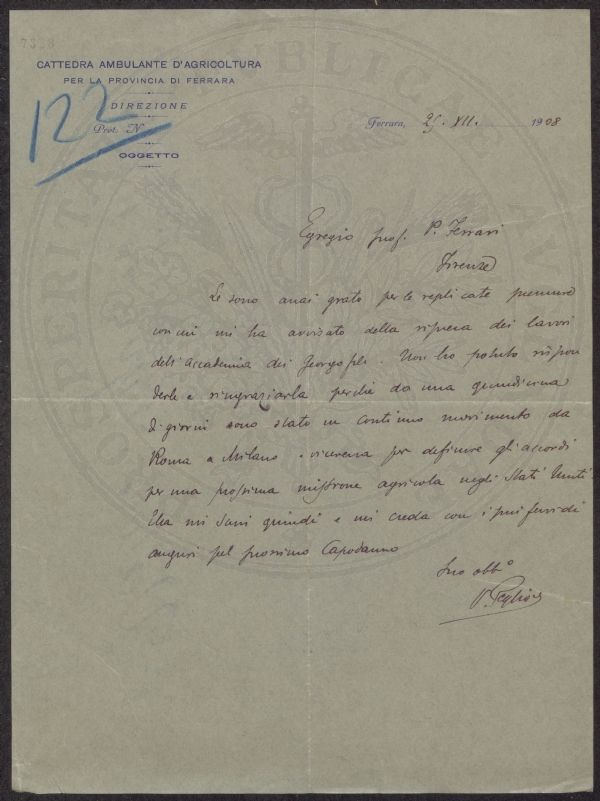 7338
CATTEDRA AMBULANTE D'AGRICOLTURA
PER LA PROVINCIA DI FERRARA
DIREZIONE
Prot. N
122
OGGETTO
Ferrara, 25. XII. 1908
Egregio prof. P. Ferrari
Firenze
Le sono assai grato per le replicate premure
con cui mi ha avvisato della ripresa dei lavori
dell'Accademia dei Georgofili. Non ho potuto rispon
derle e ringraziarla perchè da una quindicina
di giorni sono stato in continuo movimento da
Roma a Milano e viceversa per definire gli accordi
per una prossima missione agricola negli Stati Uniti.
Ella mi scusi quindi e mi creda con i più fervidi
auguri pel prossimo Capodanno
Suo obb°